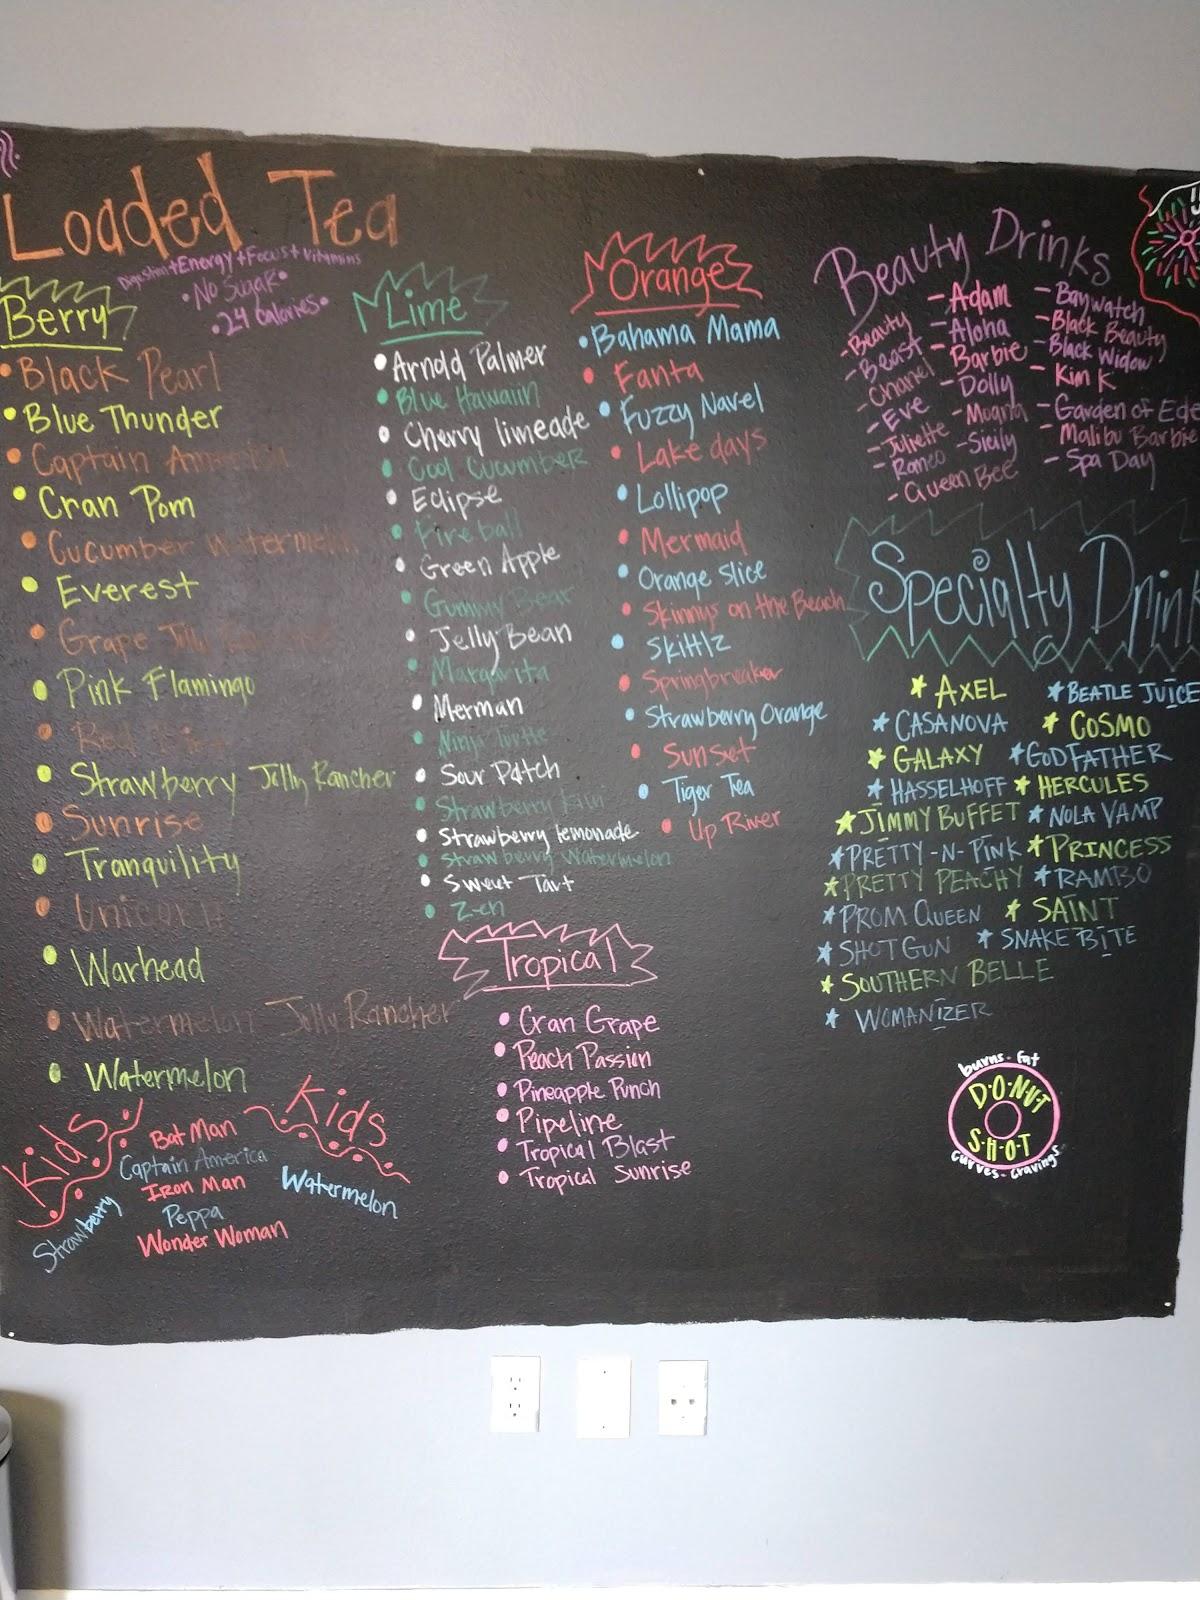 Loaded Tea
Digestion+Energy+Focus+Vitamins
•No Sugar•
•24 Calories•
Berry
•Black Pearl
•Blue Thunder
•Captain America
•Cran Pom
•Cucumber Watermelon
•Everest
•Grape Jolly
•Pink Flamingo
•Red
•Strawberry Jolly Rancher
•Sunrise
•Tranquility
•Unicorn
•Warhead
•Watermelon Jolly Rancher
•Watermelon
Kids
Strawberry
Bat Man
Captain America
Iron Man
Peppa
Wonder Woman
Kids
Watermelon
Lime
•Arnold Palmer
•Blue Hawaiin
•Cherry limeade
•Cool Cucumber
•Eclipse
•Fireball
•Green Apple
•Gummy Bear
•Jelly Bean
•Margarita
•Merman
•Ninja Turtle
•Sour Patch
•Strawberry Kiwi
•Strawberry lemonade
•Strawberry Watermelon
•Sweet Tart
•Z-en
Tropical
•Cran Grape
•Peach Passion
•Pineapple Punch
•Pipeline
•Tropical Blast
•Tropical Sunrise
Orange
•Bahama Mama
•Fanta
•Fuzzy Navel
•Lake days
•Lollipop
•Mermaid
•Orange Slice
•Skinnys on the Beach
•Skittlz
•Springbreaker
•Strawberry Orange
•Sunset
•Tiger Tea
•Up River
Beauty Drinks
-Beauty
-Beast
-Chanel
-Eve
-Juliette
-Romeo
-Queen Bee
-Adam
-Aloha
-Barbie
-Dolly
-Moana
-Sicily
-Baywatch
-Black Beauty
-Black Widow
-Kim K
-Garden of
Malibu Barbie
-Spa Day
Specialty
*AXEL *BEATLE JUICE
*CASANOVA *COSMO
*GALAXY *GODFATHER
*HASSELHOFF *HERCULES
*JIMMY BUFFET *NOLA VAMP
*PRETTY-N-PINK *PRINCESS
*PRETTY PEACHY *RAMBO
*PROM QUEEN *SAINT
*SHOT GUN *SNAKE BITE
*SOUTHERN BELLE
*WOMANIZER
burns-fat
D•O•N•U•T
S•H•O•T
curves-cravings